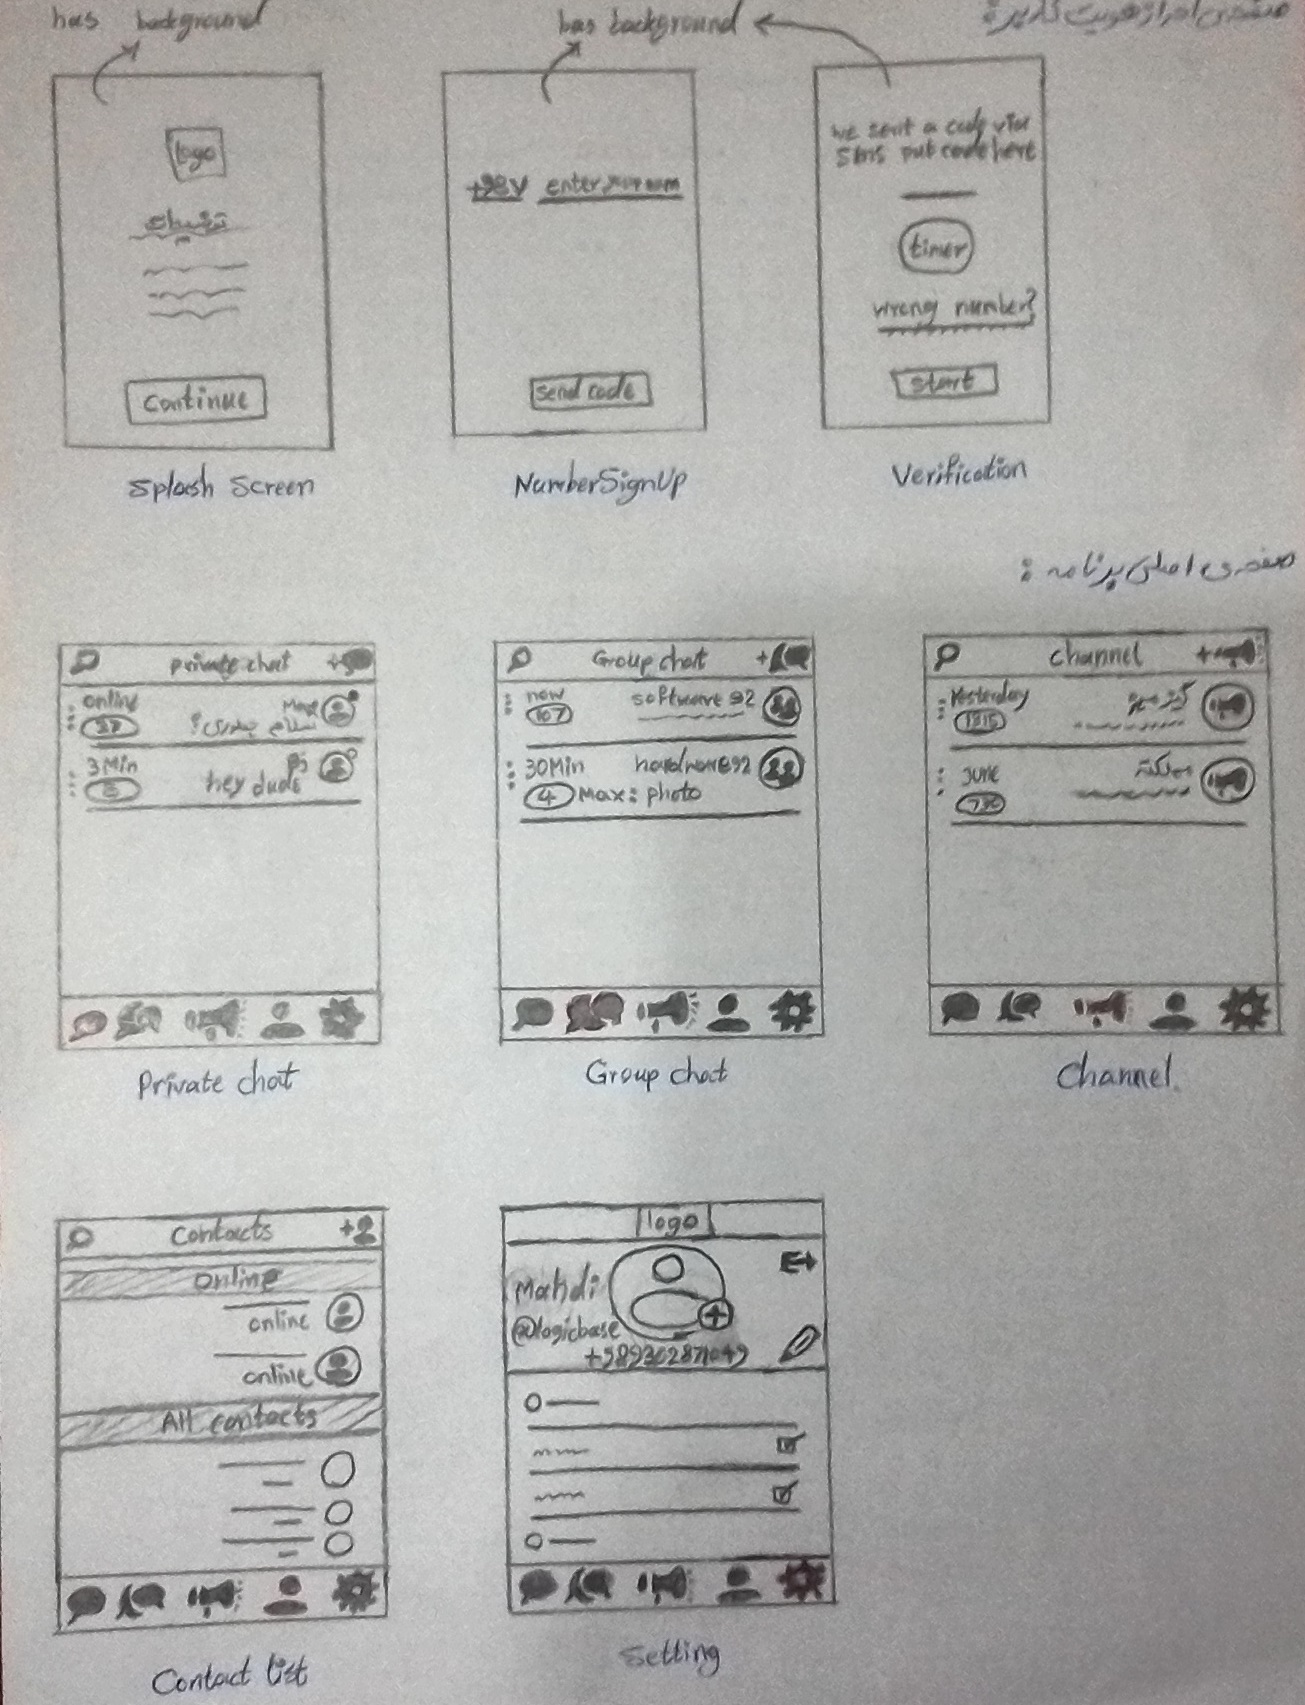 has background
has background
صفحه‌ی احراز هویت کاربر:
logo
Continue
Splash Screen
+98
enter your num
send code
NumberSignUp
we sent a code via
sms put code here
timer
wrong number?
start
Verification
صفحه‌ی اصلی برنامه:
private chat +
online
Max
سلام چطوری؟
3 Min
hey dude
Private chat
Group chat +
now
software 92
107
30Min hardware92
4 Max: photo
Group chat
channel +
Yesterday
1215
June
Channel
Contacts +
Online
online
online
All contacts
Contact list
logo
Mahdi
@logicbase
Setting